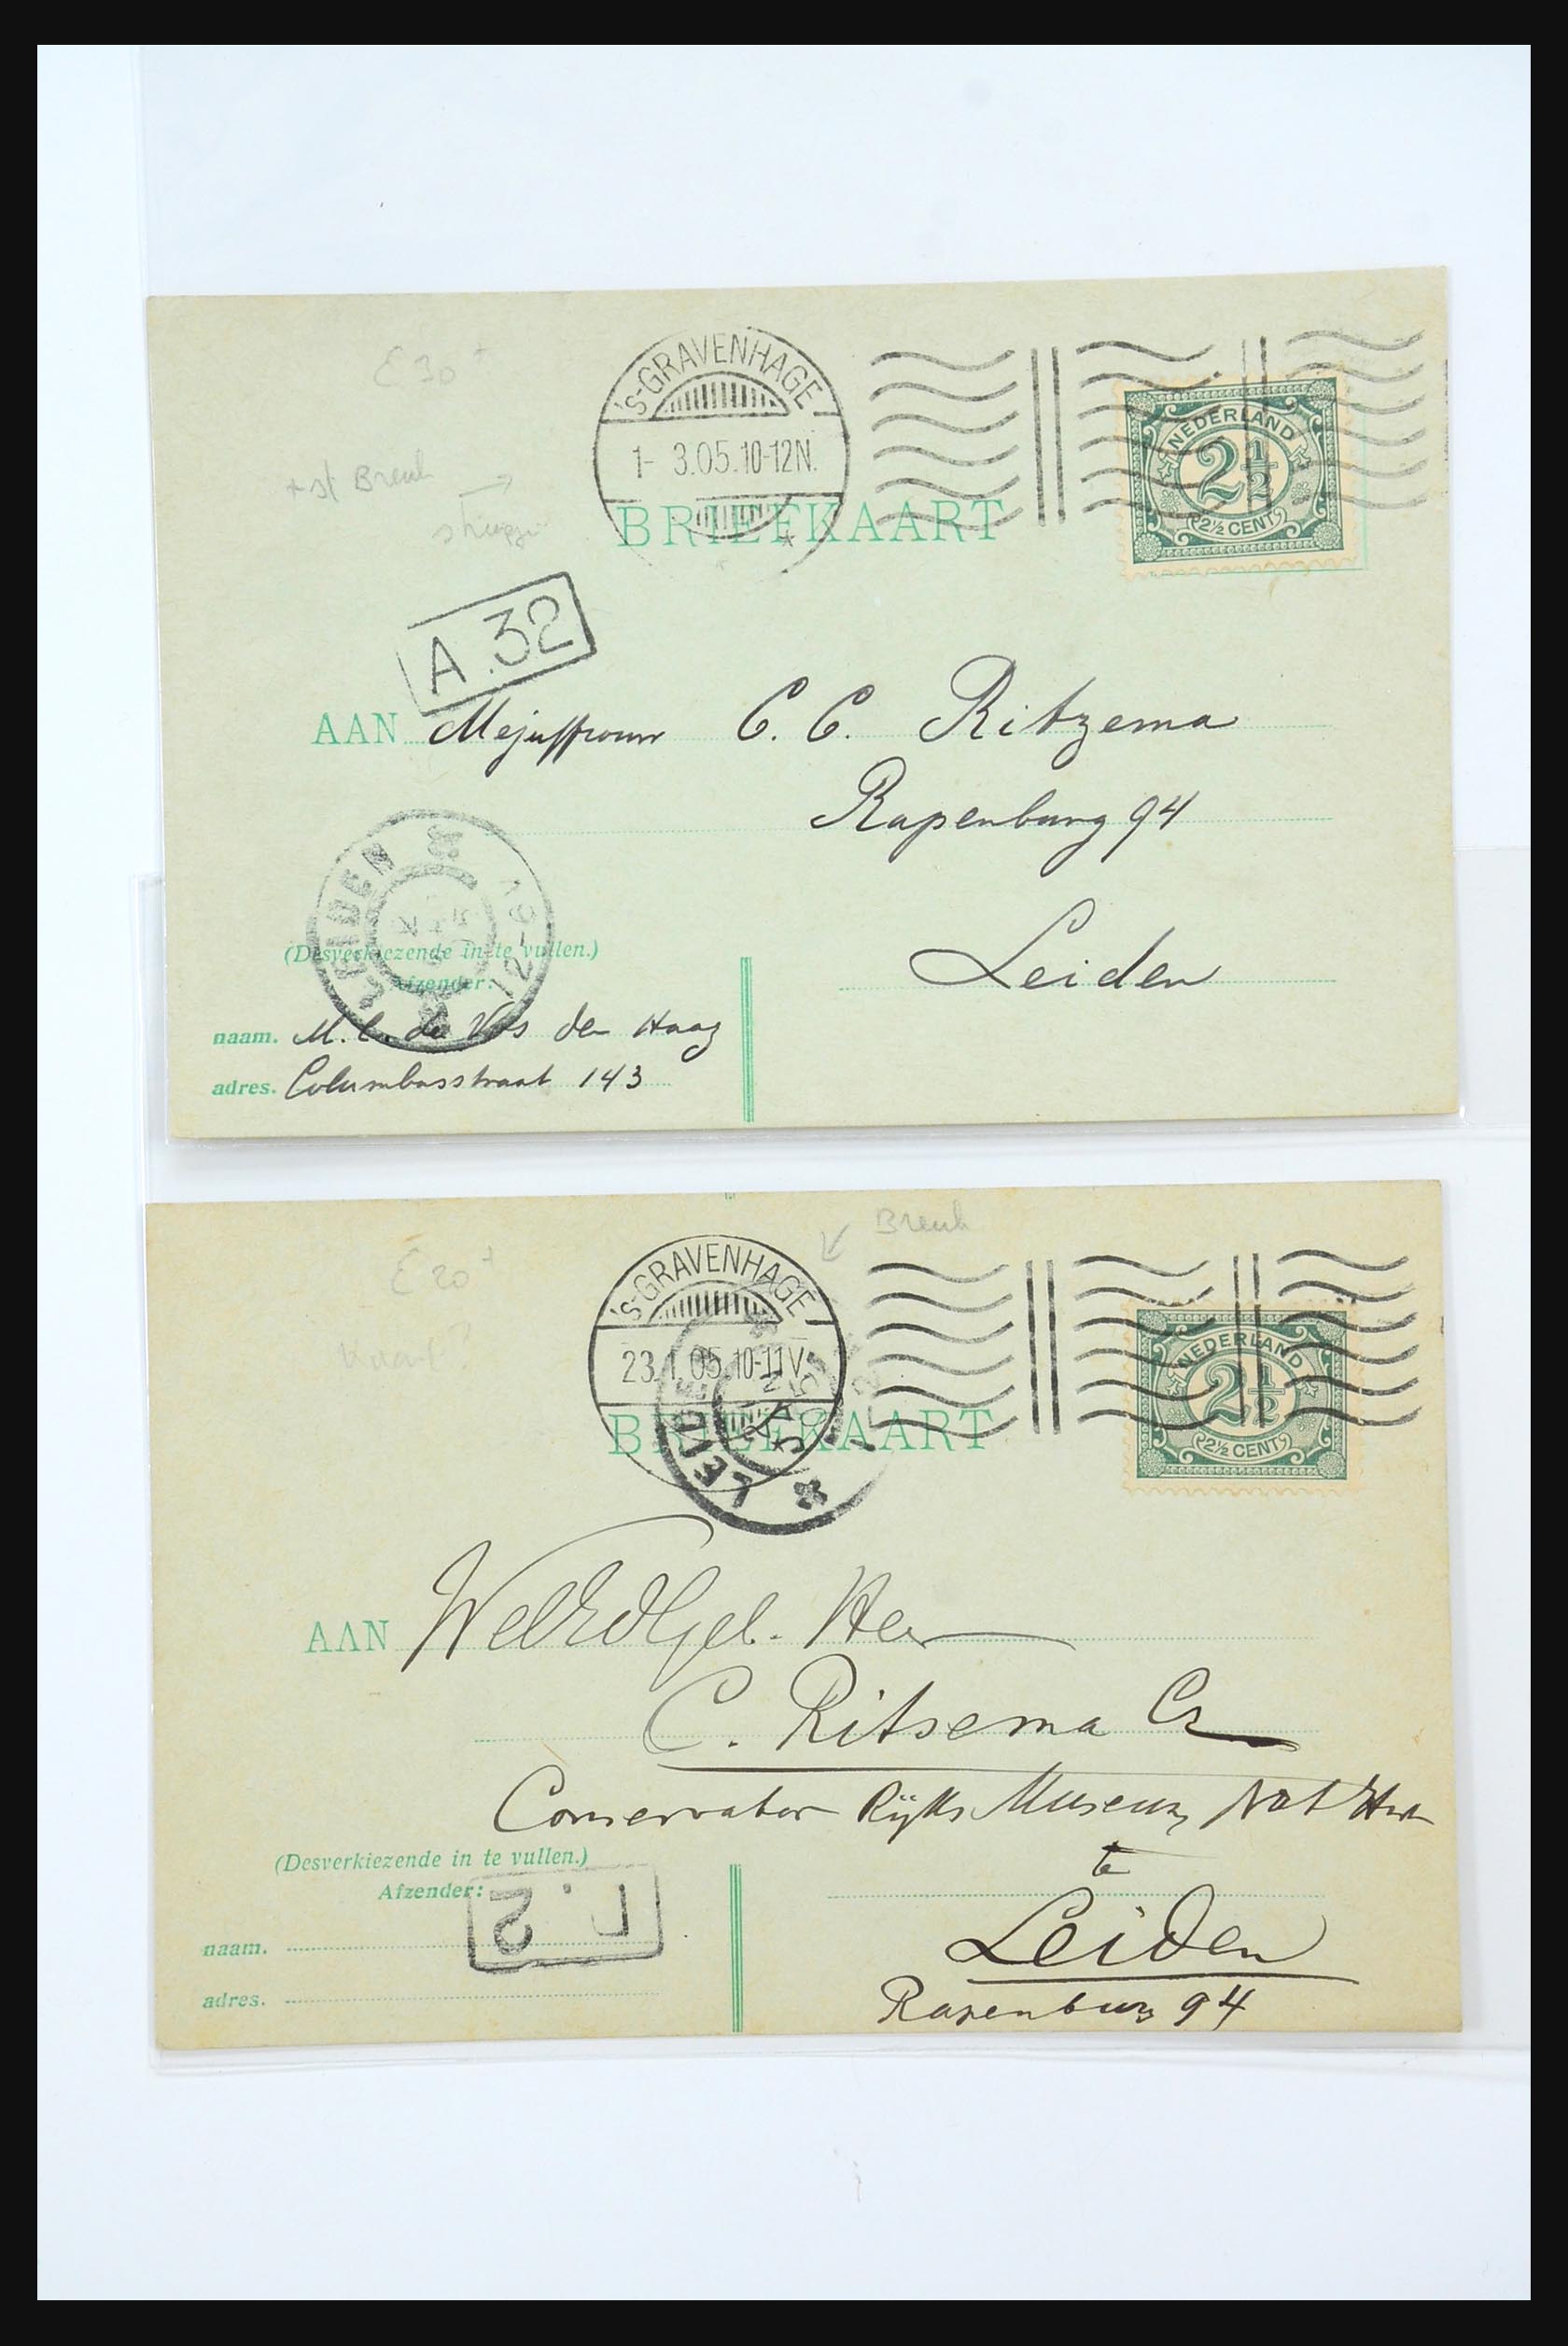 € 30 +
'S-GRAVENHAGE
1- 3.05.10-12N.
NEDERLAND
2½
2½ CENT
+ st Breuk
BRIEFKAART
A.32
AAN Mejuffrouw C. C. Ritzema
Rapenburg 94
LEIDEN
Leiden
(Desverkiezende in te vullen.)
Afzender:
naam. M. C. de Vos den Haag
adres. Columbusstraat 143
Breuk
€ 20 +
'S-GRAVENHAGE
23.1.05.10-11V.
NEDERLAND
2½
2½ CENT
Kaart?
BRIEFKAART
LEIDEN
AAN WelEdlGeb. Heer
C. Ritsema Cz
Conservator Rijks Museum Nat Hist
te
(Desverkiezende in te vullen.)
Afzender:
L.2
Leiden
naam.
adres.
Rapenburg 94